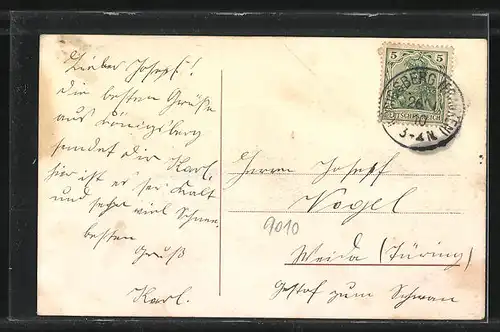 Lieber Josef!
die besten Grüße
aus Königsberg
sendet dir Karl.
hier ist es sehr kalt
und sehr viel Schnee.
besten
Gruß
Karl.
5 5
DEUTSCHES REICH
3-4N
Herrn Josef
Vogel
9010
Weida (Thüring.)
Gasthof zum Schwan